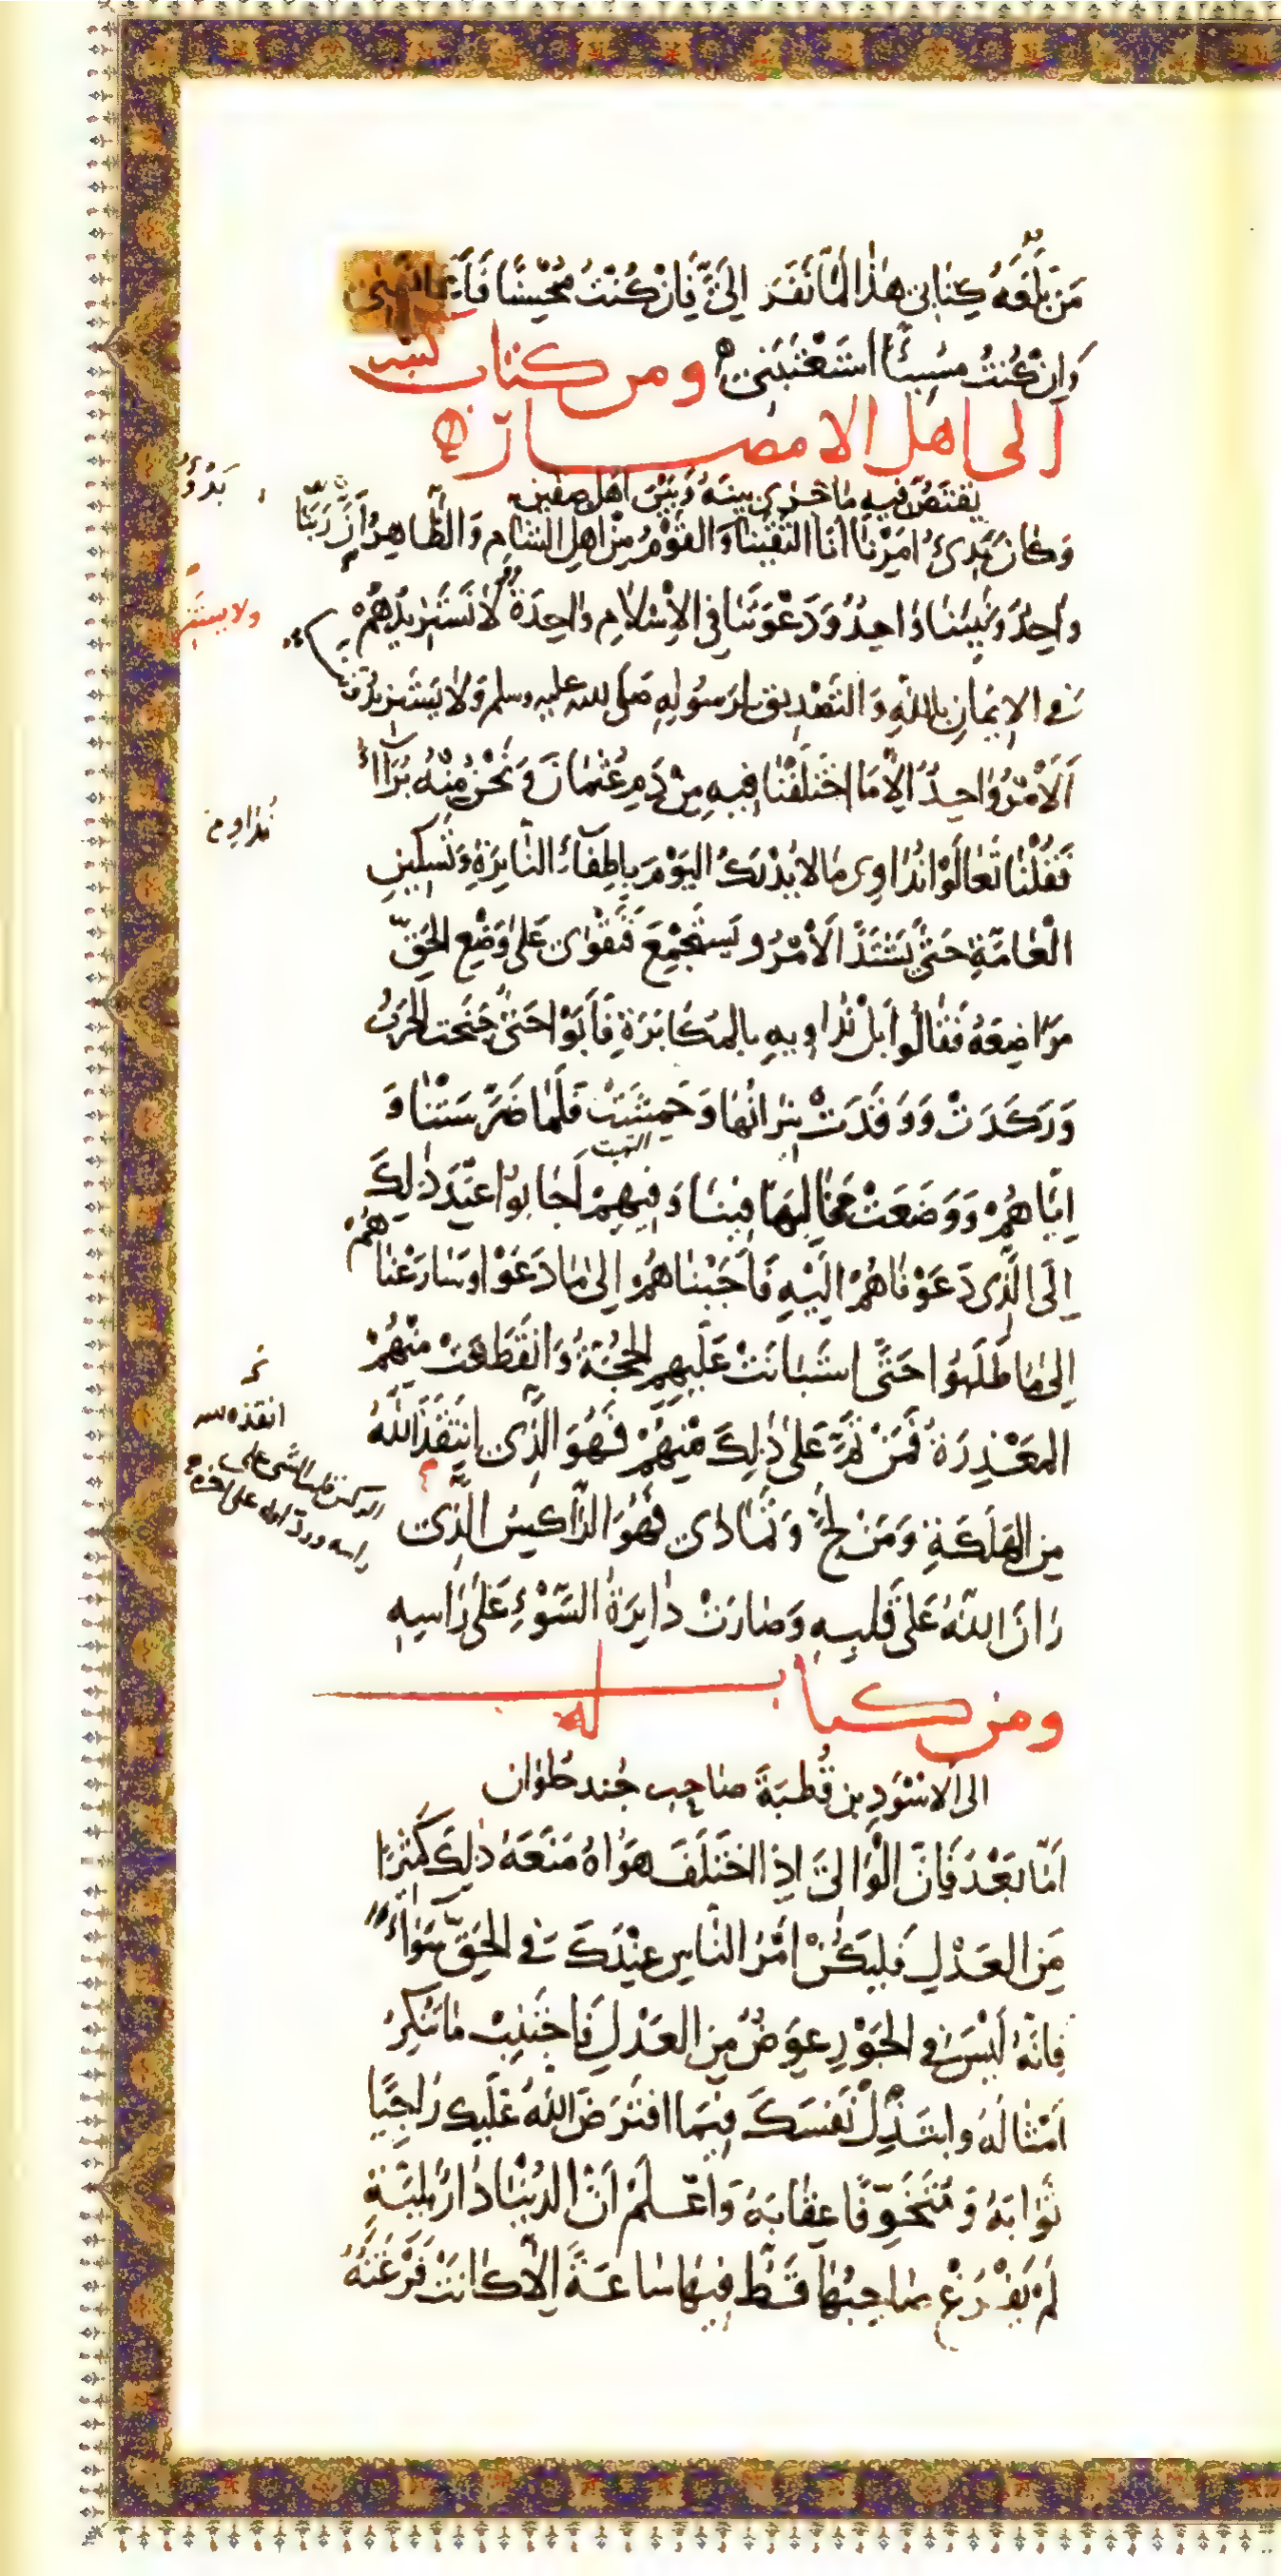 مَنْ بَلَغَهُ كِتَابِي هٰذَا لَمَّا نَفَرَ اِلَيَّ فَاِنْ كُنْتُ مُحْسِنًا اَعَانَنِي
وَاِنْ كُنْتُ مُسِيئًا اسْتَعْتَبَنِي ومن كتاب كتبه
الى اهل الامصار
يَقْتَصُّ فيه مَا جَرٰى بينَهُ وَبَيْنَ اهل صفين
وَكَانَ بَدِيُ اَمْرِنَا اَنَّا الْتَقَيْنَا وَالْقَوْمُ مِنْ اَهْلِ الشَّامِ وَالظَّاهِرُ اَنَّ رَبَّنَا
وَاحِدٌ وَنَبِيَّنَا وَاحِدٌ وَدَعْوَتَنَا فِي الْاِسْلَامِ وَاحِدَةٌ لَا نَسْتَزِيدُهُمْ
فِي الْاِيمَانِ بِاللّٰهِ وَالتَّصْدِيقِ لِرَسُولِهِ صلى الله عليه وسلم وَلَا يَسْتَزِيدُونَنَا
اَلْاَمْرُ وَاحِدٌ اِلَّا مَا اخْتَلَفْنَا فِيهِ مِنْ دَمِ عُثْمَانَ وَنَحْنُ مِنْهُ بُرَاءُ
فَقُلْنَا تَعَالَوْا نُدَاوِي مَا لَا يُدْرَكُ الْيَوْمَ بِاِطْفَاءِ النَّايِرَةِ وَتَسْكِينِ
الْعَامَّةِ حَتّٰى يَشْتَدَّ الْاَمْرُ وَيَسْتَجْمِعَ فَنَقْوٰى عَلٰى وَضْعِ الْحَقِّ
مَوَاضِعَهُ فَقَالُوا بَلْ نُدَاوِيهِ بِالْمُكَابَرَةِ فَاَبَوْا حَتّٰى جَنَحَتِ الْحَرْبُ
وَرَكَدَتْ وَوَقَدَتْ نِيرَانُهَا وَحَمِشَتْ فَلَمَّا ضَرَّسَتْنَا وَ
التهبت
اِيَّاهُمْ وَوَضَعَتْ مَخَالِبَهَا فِينَا وَفِيهِمْ اَجَابُوا عِنْدَ ذٰلِكَ
اِلَى الَّذِي دَعَوْنَاهُمْ اِلَيْهِ فَاَجَبْنَاهُمْ اِلٰى مَا دَعَوْا وَسَارَعْنَاهُمْ
اِلٰى مَا طَلَبُوا حَتّٰى اسْتَبَانَتْ عَلَيْهِمِ الْحُجَّةُ وَانْقَطَعَتْ مِنْهُمُ
الْمَعْذِرَةُ فَمَنْ تَمَّ عَلٰى ذٰلِكَ مِنْهُمْ فَهُوَ الَّذِي اَنْقَذَهُ اللّٰهُ
مِنَ الْهَلَكَةِ وَمَنْ لَجَّ وَتَمَادٰى فَهُوَ الرَّاكِسُ الَّذِي
رَانَ اللّٰهُ عَلٰى قَلْبِهِ وَصَارَتْ دَايِرَةُ السَّوْءِ عَلٰى رَاْسِهِ
ومن كتاب له
الى الاسْوَدِ بن قُطْبَةَ صاحب جُند حُلوان
اَمَّا بَعْدُ فَاِنَّ الْوَالِيَ اِذَا اخْتَلَفَ هَوَاهُ مَنَعَهُ ذٰلِكَ كَثِيرًا
مِنَ الْعَدْلِ فَلْيَكُنْ اَمْرُ النَّاسِ عِنْدَكَ فِي الْحَقِّ سَوَاءً
فَاِنَّهُ لَيْسَ فِي الْجَوْرِ عِوَضٌ مِنَ الْعَدْلِ فَاجْتَنِبْ مَا تُنْكِرُ
اَمْثَالَهُ وَابْتَذِلْ نَفْسَكَ فِيمَا افْتَرَضَ اللّٰهُ عَلَيْكَ رَاجِيًا
ثَوَابَهُ وَمُتَخَوِّفًا عِقَابَهُ وَاعْلَمْ اَنَّ الدُّنْيَا دَارُ بَلِيَّةٍ
لَمْ يَفْرُغْ صَاحِبُهَا قَطُّ فِيهَا سَاعَةً اِلَّا كَانَتْ فَرْغَتُهُ
بَدْوُ
ولا يستز
نداو من